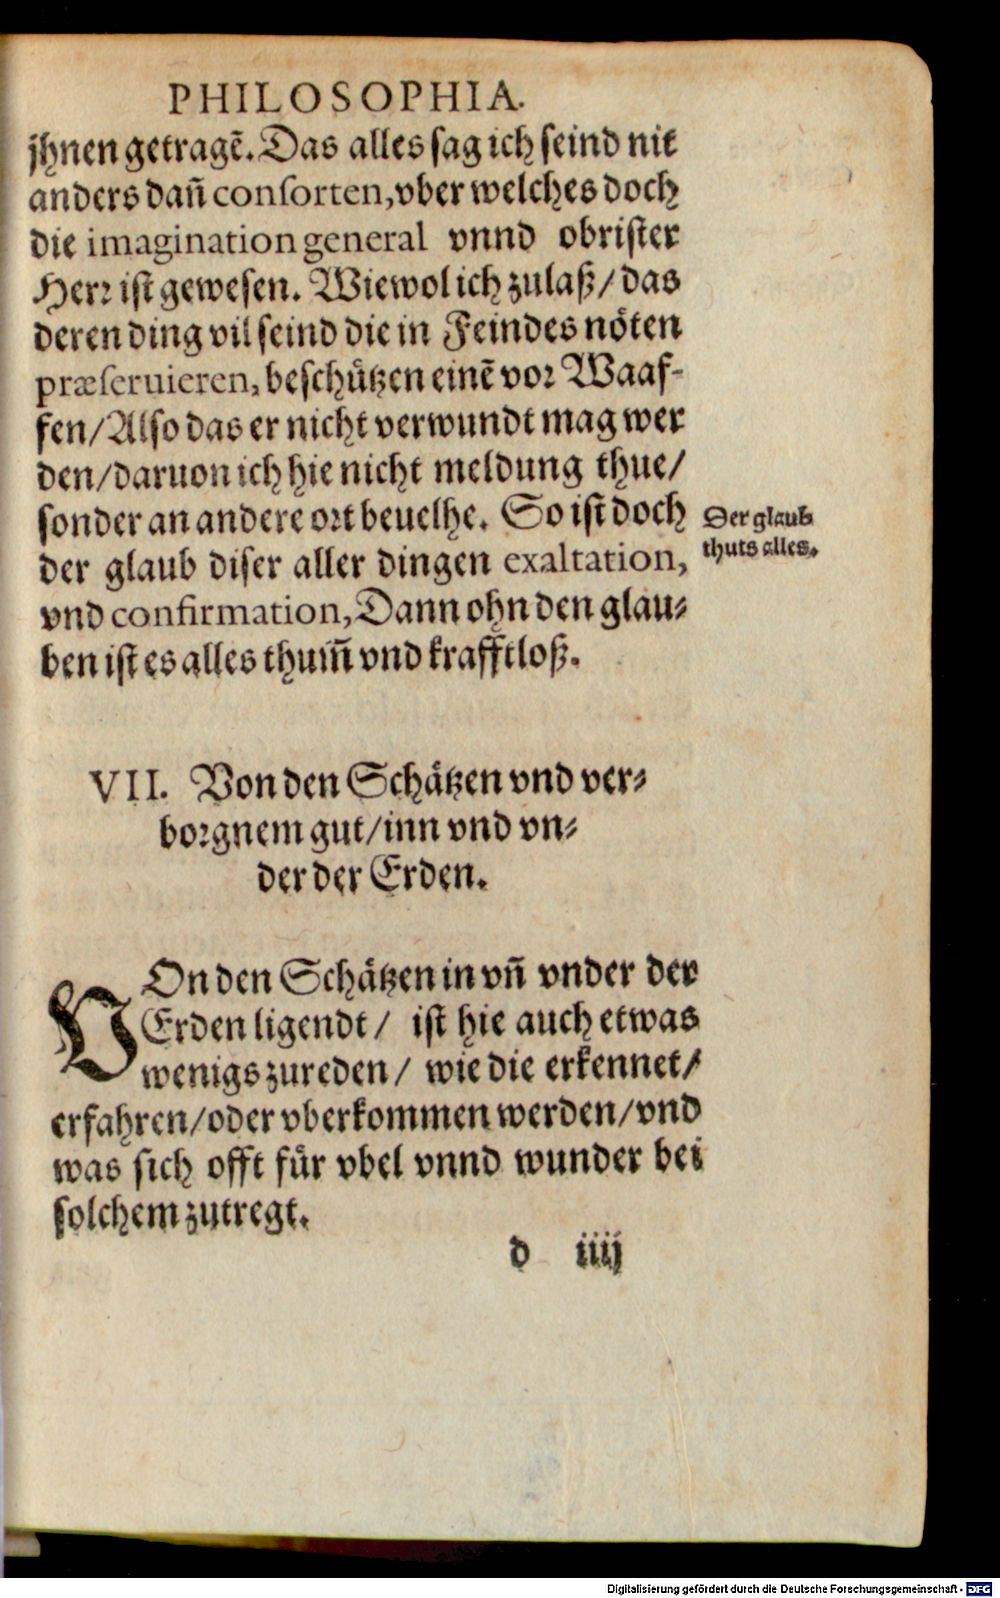 PHILOSOPHIA.
jhnen getragẽ. Das alles sag ich seind nit
anders dañ consorten, vber welches doch
die imagination general vnnd obrister
Herr ist gewesen. Wiewol ich zulaß / das
deren ding vil seind die in Feindes nöten
præseruieren, beschützen einẽ vor Waaf-
fen / Also das er nicht verwundt mag wer
den / daruon ich hie nicht meldung thue /
sonder an andere ort beuelhe. So ist doch
der glaub diser aller dingen exaltation,
vnd confirmation, Dann ohn den glau-
ben ist es alles thum̃ vnd krafftloß.
Der glaub
thuts alles.
VII. Von den Schätzen vnd ver-
borgnem gut / inn vnd vn-
der der Erden.
VOn den Schätzen in vñ vnder der
Erden ligendt / ist hie auch etwas
wenigs zureden / wie die erkennet /
erfahren / oder vberkommen werden / vnd
was sich offt für vbel vnnd wunder bei
solchem zutregt.
d iiij
Digitalisierung gefördert durch die Deutsche Forschungsgemeinschaft - DFG